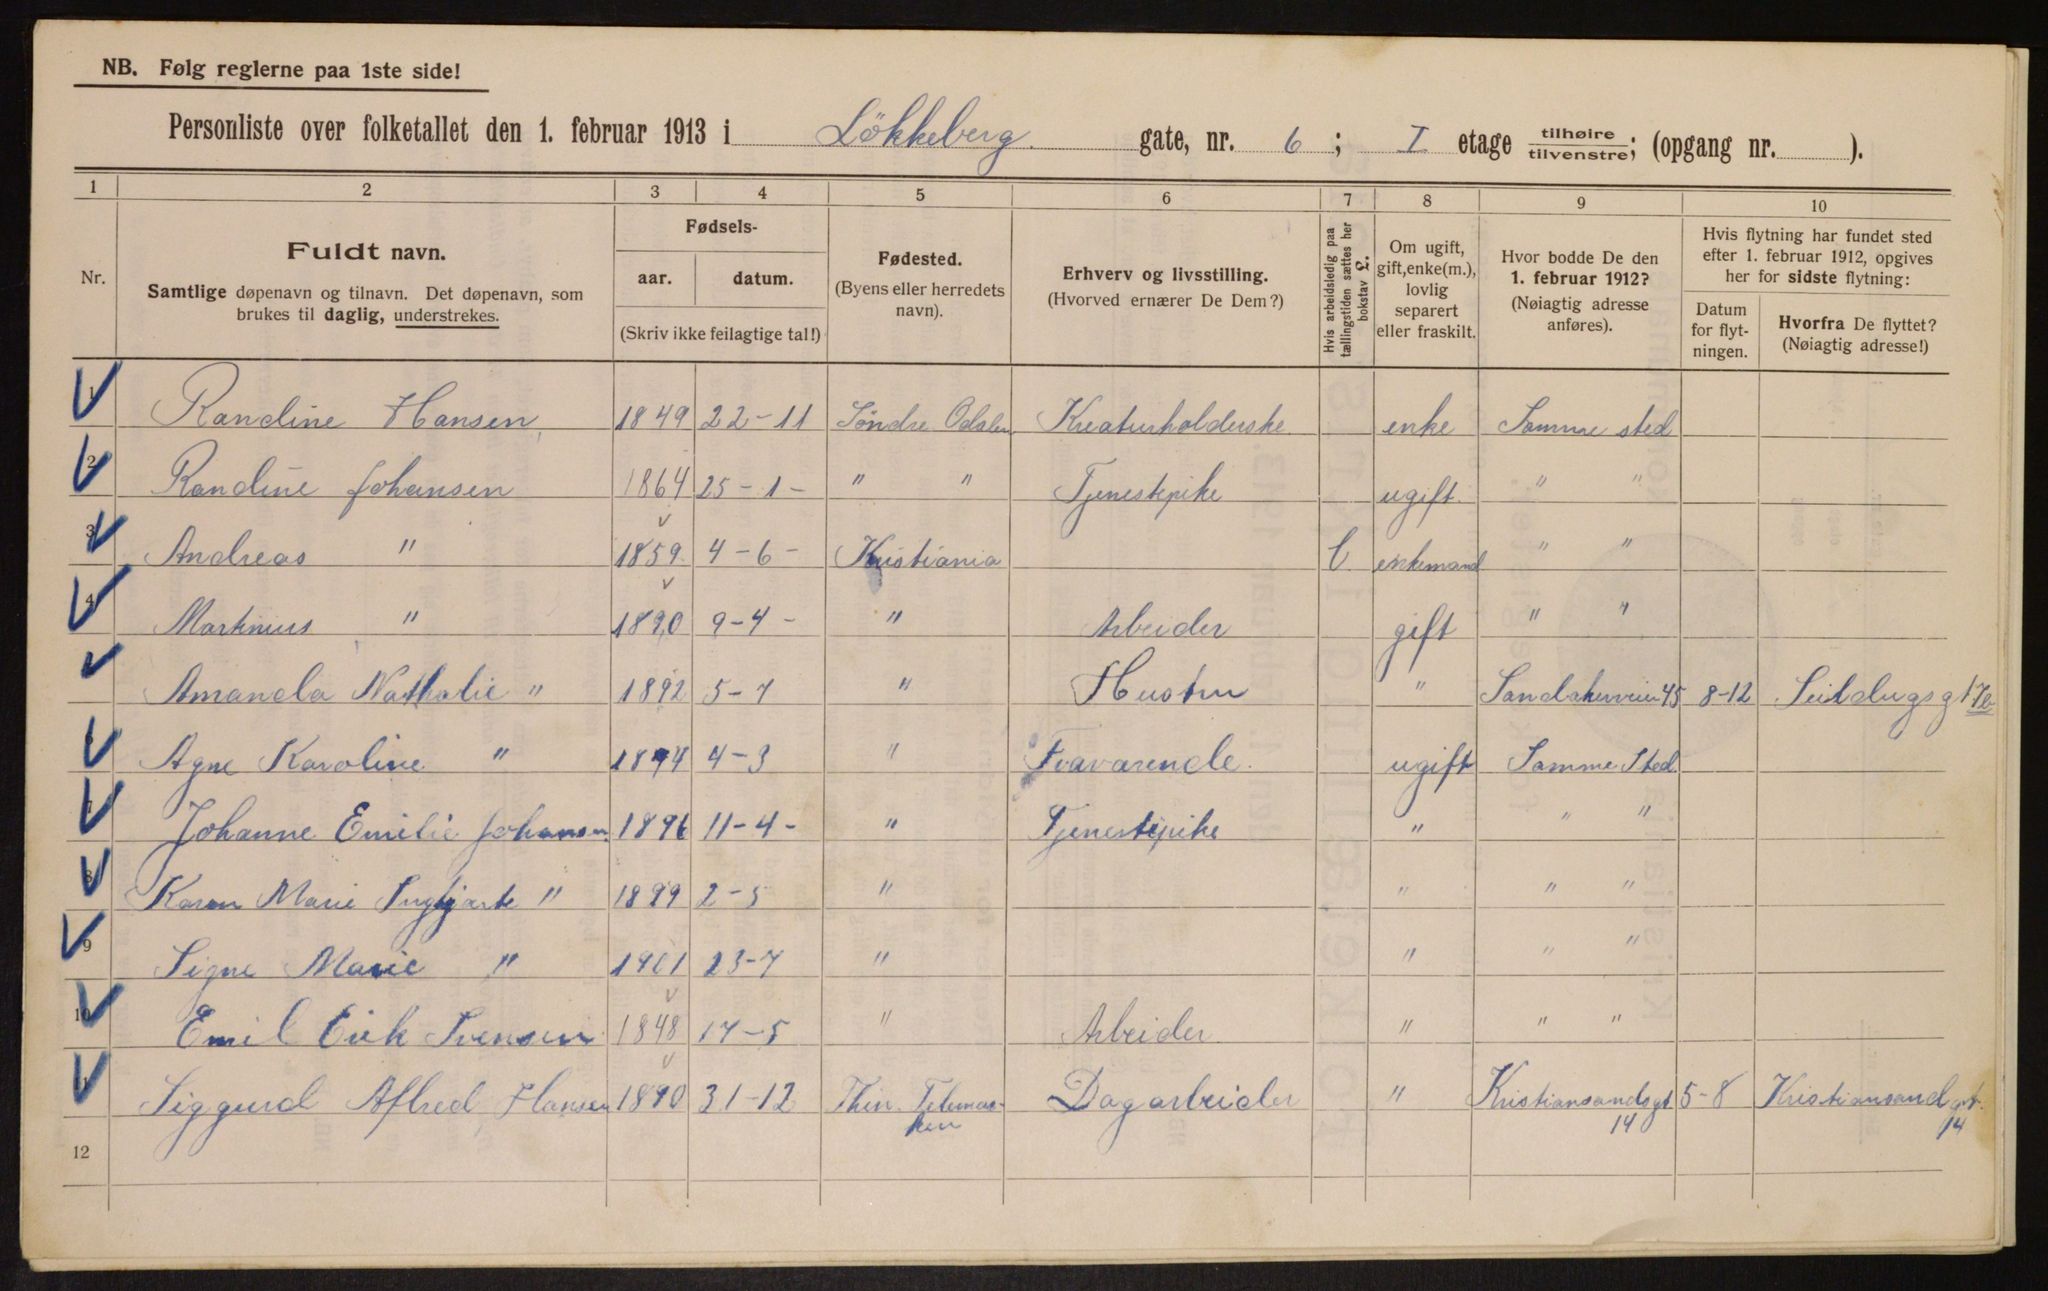 NB. Følg reglerne paa 1ste side!
Personliste over folketallet den 1. februar 1913 i Løkkeberg gate, nr. 6; I etage tilhøire/tilvenstre; (opgang nr. ).
1 2 3 4 5 6 7 8 9 10
Nr.
Fuldt navn.
Samtlige døpenavn og tilnavn. Det døpenavn, som
brukes til daglig, understrekes.
Fødsels-
aar. datum.
(Skriv ikke feilagtige tal!)
Fødested.
(Byens eller herredets
navn).
Erhverv og livsstilling.
(Hvorved ernærer De Dem?)
Hvis arbeidsledig paa
tællingstiden sættes her
bokstav L.
Om ugift,
gift, enke(m.),
lovlig
separert
eller fraskilt.
Hvor bodde De den
1. februar 1912?
(Nøiagtig adresse
anføres).
Hvis flytning har fundet sted
efter 1. februar 1912, opgives
her for sidste flytning:
Datum
for flyt-
ningen.
Hvorfra De flyttet?
(Nøiagtig adresse!)
1 Randine Hansen 1849 22-11 Søndre Odalen Kreaturholderske enke Samme sted
2 Randine Johansen 1864 25-1- " " Tjenestepike ugift. " "
3 Andreas " 1859. 4-6- Kristiania enkemand " "
4 Martinius " 1890 9-4- " Arbeider gift " "
Amanda Nathalie " 1892 5-7 " Hustru " Sandakerveien 45 8-12
6 Agne Karoline " 1894 4-3 " ugift Samme Sted
7 Johanne Emilie Johansen 1896 11-4- " Tjenestepike " " "
8 Karen Marie " 1899 2-5 " " " "
9 Signe Marie " 1901 23-7 " " " "
10 Emil Erik Svensen 1848 17-5 " Arbeider " " "
Siggurd Alfred Hansen 1890 31-12 Telemar- Dagarbeider " Kristiansandsgt 5-8 Kristiansand gt.
ken 14 14
12